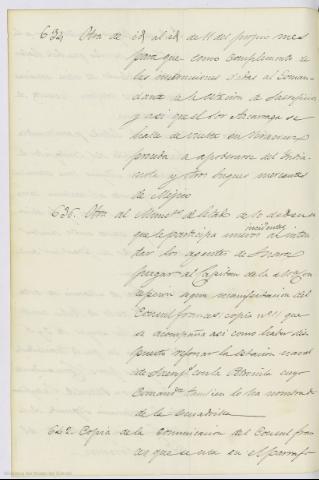 634. Otra de id al id de 11 del propio mes
para que como complemento de
las instrucciones dadas al Coman-
dante de la Estacion de Sacrificios
y asi que el Sor Arárraga se
halle de vuelta en Veracruz
proceda a apoderarse del India-
nola y otros buques mercantes
de Méjico
636. Otra al Minº de Estado de 10 de
que le participa incidentes al inten-
dar los agentes de
al Capitan de la
segun manifestacion del
Consul frances, copia nº 11 que
se acompaña asi como haber dis-
puesto reforzar la estacion naval
de Sacrifº con la Petronila cuyo
Comanᵗᵉ tambien lo ha nombrado
de la escuadrilla
642. Copia de la Comunicacion del Consul fran-
ces que se cita en el parrafo